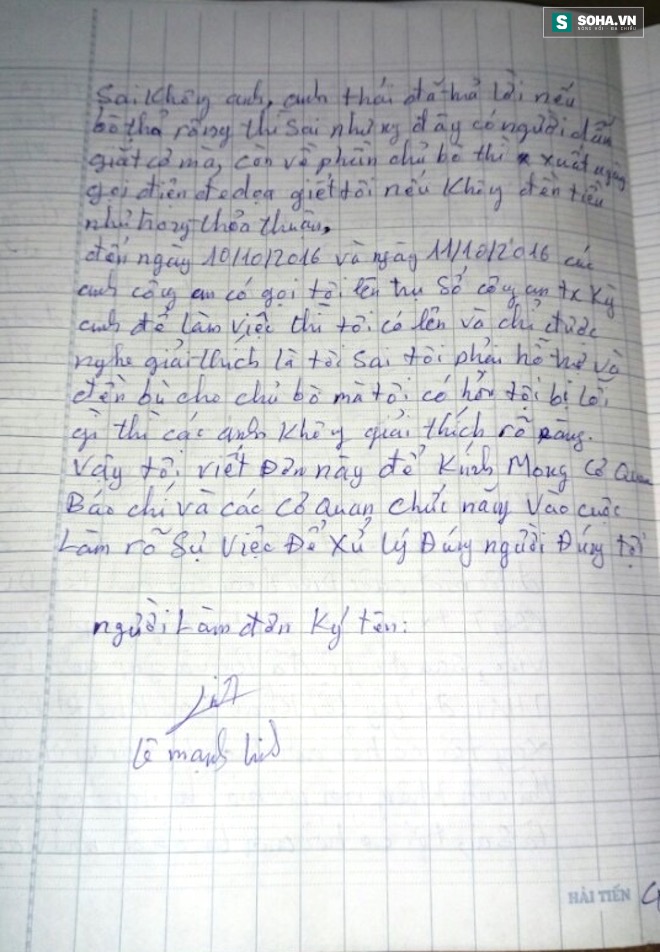 SOHA.VN
Sai không anh, anh thái đã trả lời nếu
bò thả rông thì sai nhưng đây có người dẫn
giắt cơ mà, còn về phần chủ bò thì xuất ngày
gọi điện đe dọa giết tôi nếu không đền tiền
như trong thỏa thuân,
đến ngày 10/10/2016 và ngày 11/10/2016 các
anh công an có gọi tôi lên trụ sở công an tx Kỳ
anh để làm việc thì tôi có lên và chỉ được
nghe giải thích là tôi sai tôi phải hỗ trợ và
đền bù cho chủ bò mà tôi có hỏi tôi bị lỗi
gì thì các anh không giải thích rõ ràng.
Vậy tôi viết Đơn này để Kính Mong Cơ Quan
Báo chí và các Cơ quan chức năng vào cuộc
Làm rõ Sự việc Để Xử Lý Đúng người Đúng tội
người Làm đơn Ký tên:
Lê mạnh
HẢI TIẾN